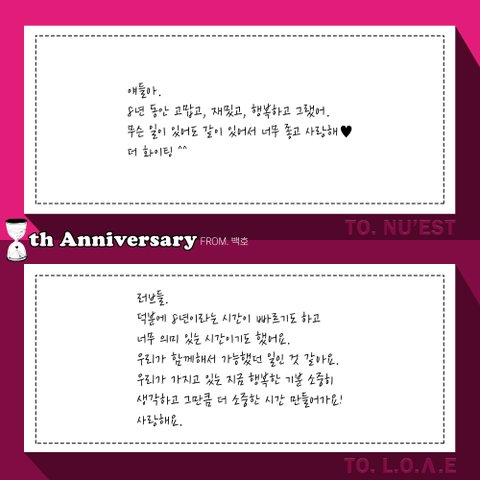 얘들아.
8년 동안 고맙고, 재밌고, 행복하고 그랬어.
무슨 일이 있어도 같이 있어서 너무 좋고 사랑해♥
더 화이팅 ^^
TO. NU'EST
th Anniversary FROM. 백호
러브들.
덕분에 8년이라는 시간이 빠르기도 하고
너무 의미 있는 시간이기도 했어요.
우리가 함께해서 가능했던 일인 것 같아요.
우리가 가지고 있는 지금 행복한 기분 소중히
생각하고 그만큼 더 소중한 시간 만들어가요!
사랑해요.
TO. L.O.Λ.E